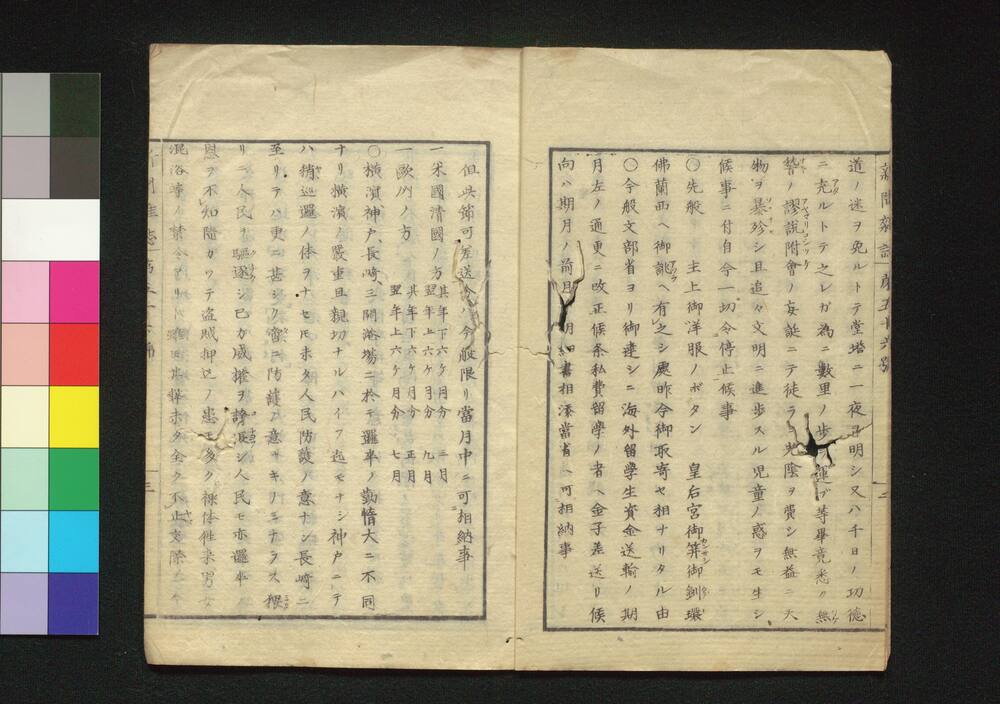 新聞雑誌 第五十六號
二
道ノ迷ヲ免ルトテ堂塔ニ一夜ヲ明シ又ハ千日ノ功德
ニ充ルトテ之レガ為ニ數里ノ歩ヲ運ブ等畢竟悉ク無
稽ノ謬説附會ノ妄誕ニテ徒ラニ光陰ヲ費シ無益ニ天
物ヲ暴殄シ且追々文明ニ進歩スル児童ノ惑ヲモ生シ
候事ニ付自今一切令停止候事
〇先般 主上御洋服ノボタン 皇后宮御笄御釧環
佛蘭西ヘ御誂ヘ有之シ處昨今御取寄セ相ナリタル由
〇今般文部省ヨリ御達シニ海外留學生資金送輸ノ期
月左ノ通更ニ改正候条私費留學ノ者ヘ金子差送リ候
向ハ期月ノ前月書相添當省ヘ可相納事
但此節可差送分ハ今般限リ當月中ニ可相納事
一米國清國ノ方 其年下六ケ月分 三月 翌年上六ケ月分 九月
一歐州ノ方 其年下六ケ月分 正月 翌年上六ケ月分 七月
〇横濱神戸、長崎、三開港場ニ於テ邏卒ノ勤惰大ニ不同
ナリ横濱ノ嚴重且親切ナルハイフ迄モナシ神戸ニテ
ハ稍巡邏ノ体ヲナセモ未タ人民防護ノ意ナシ長崎ニ
至リテハ更ニ甚シク啻ニ防護ノ意ナキノミナラス猥
リニ人民ヲ驅逐シ己カ威權ヲ誇張シ人民モ亦邏卒ノ
恩ヲ不知隨カツテ盗賊押込ノ患モ多ク裸体往来男女
混浴等ノ禁令アリト雖モ其弊未タ全ク不止
三